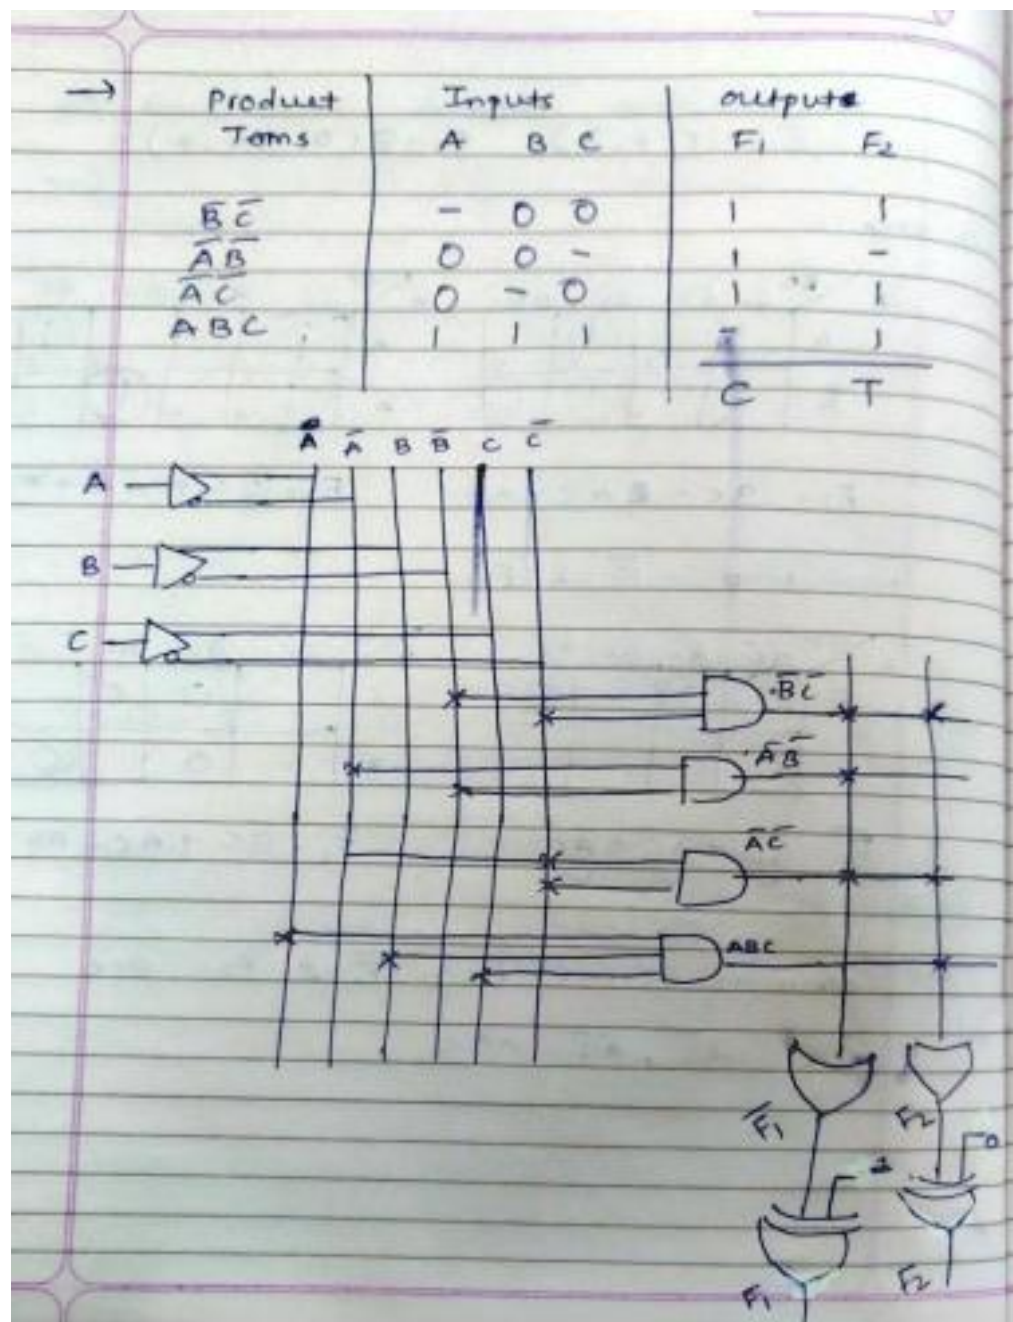 → Product Inputs outputs
Terms A B C F₁ F₂
B̅ C̅ – 0 0 1 1
A̅ B̅ 0 0 – 1 –
A̅ C̅ 0 – 0 1 1
A B C 1 1 1 – 1
C T
A A̅ B B̅ C C̅
A
B
C
B̅ C̅
A̅ B̅
A̅ C̅
ABC
F̅₁ F₂
0
F₁ F₂